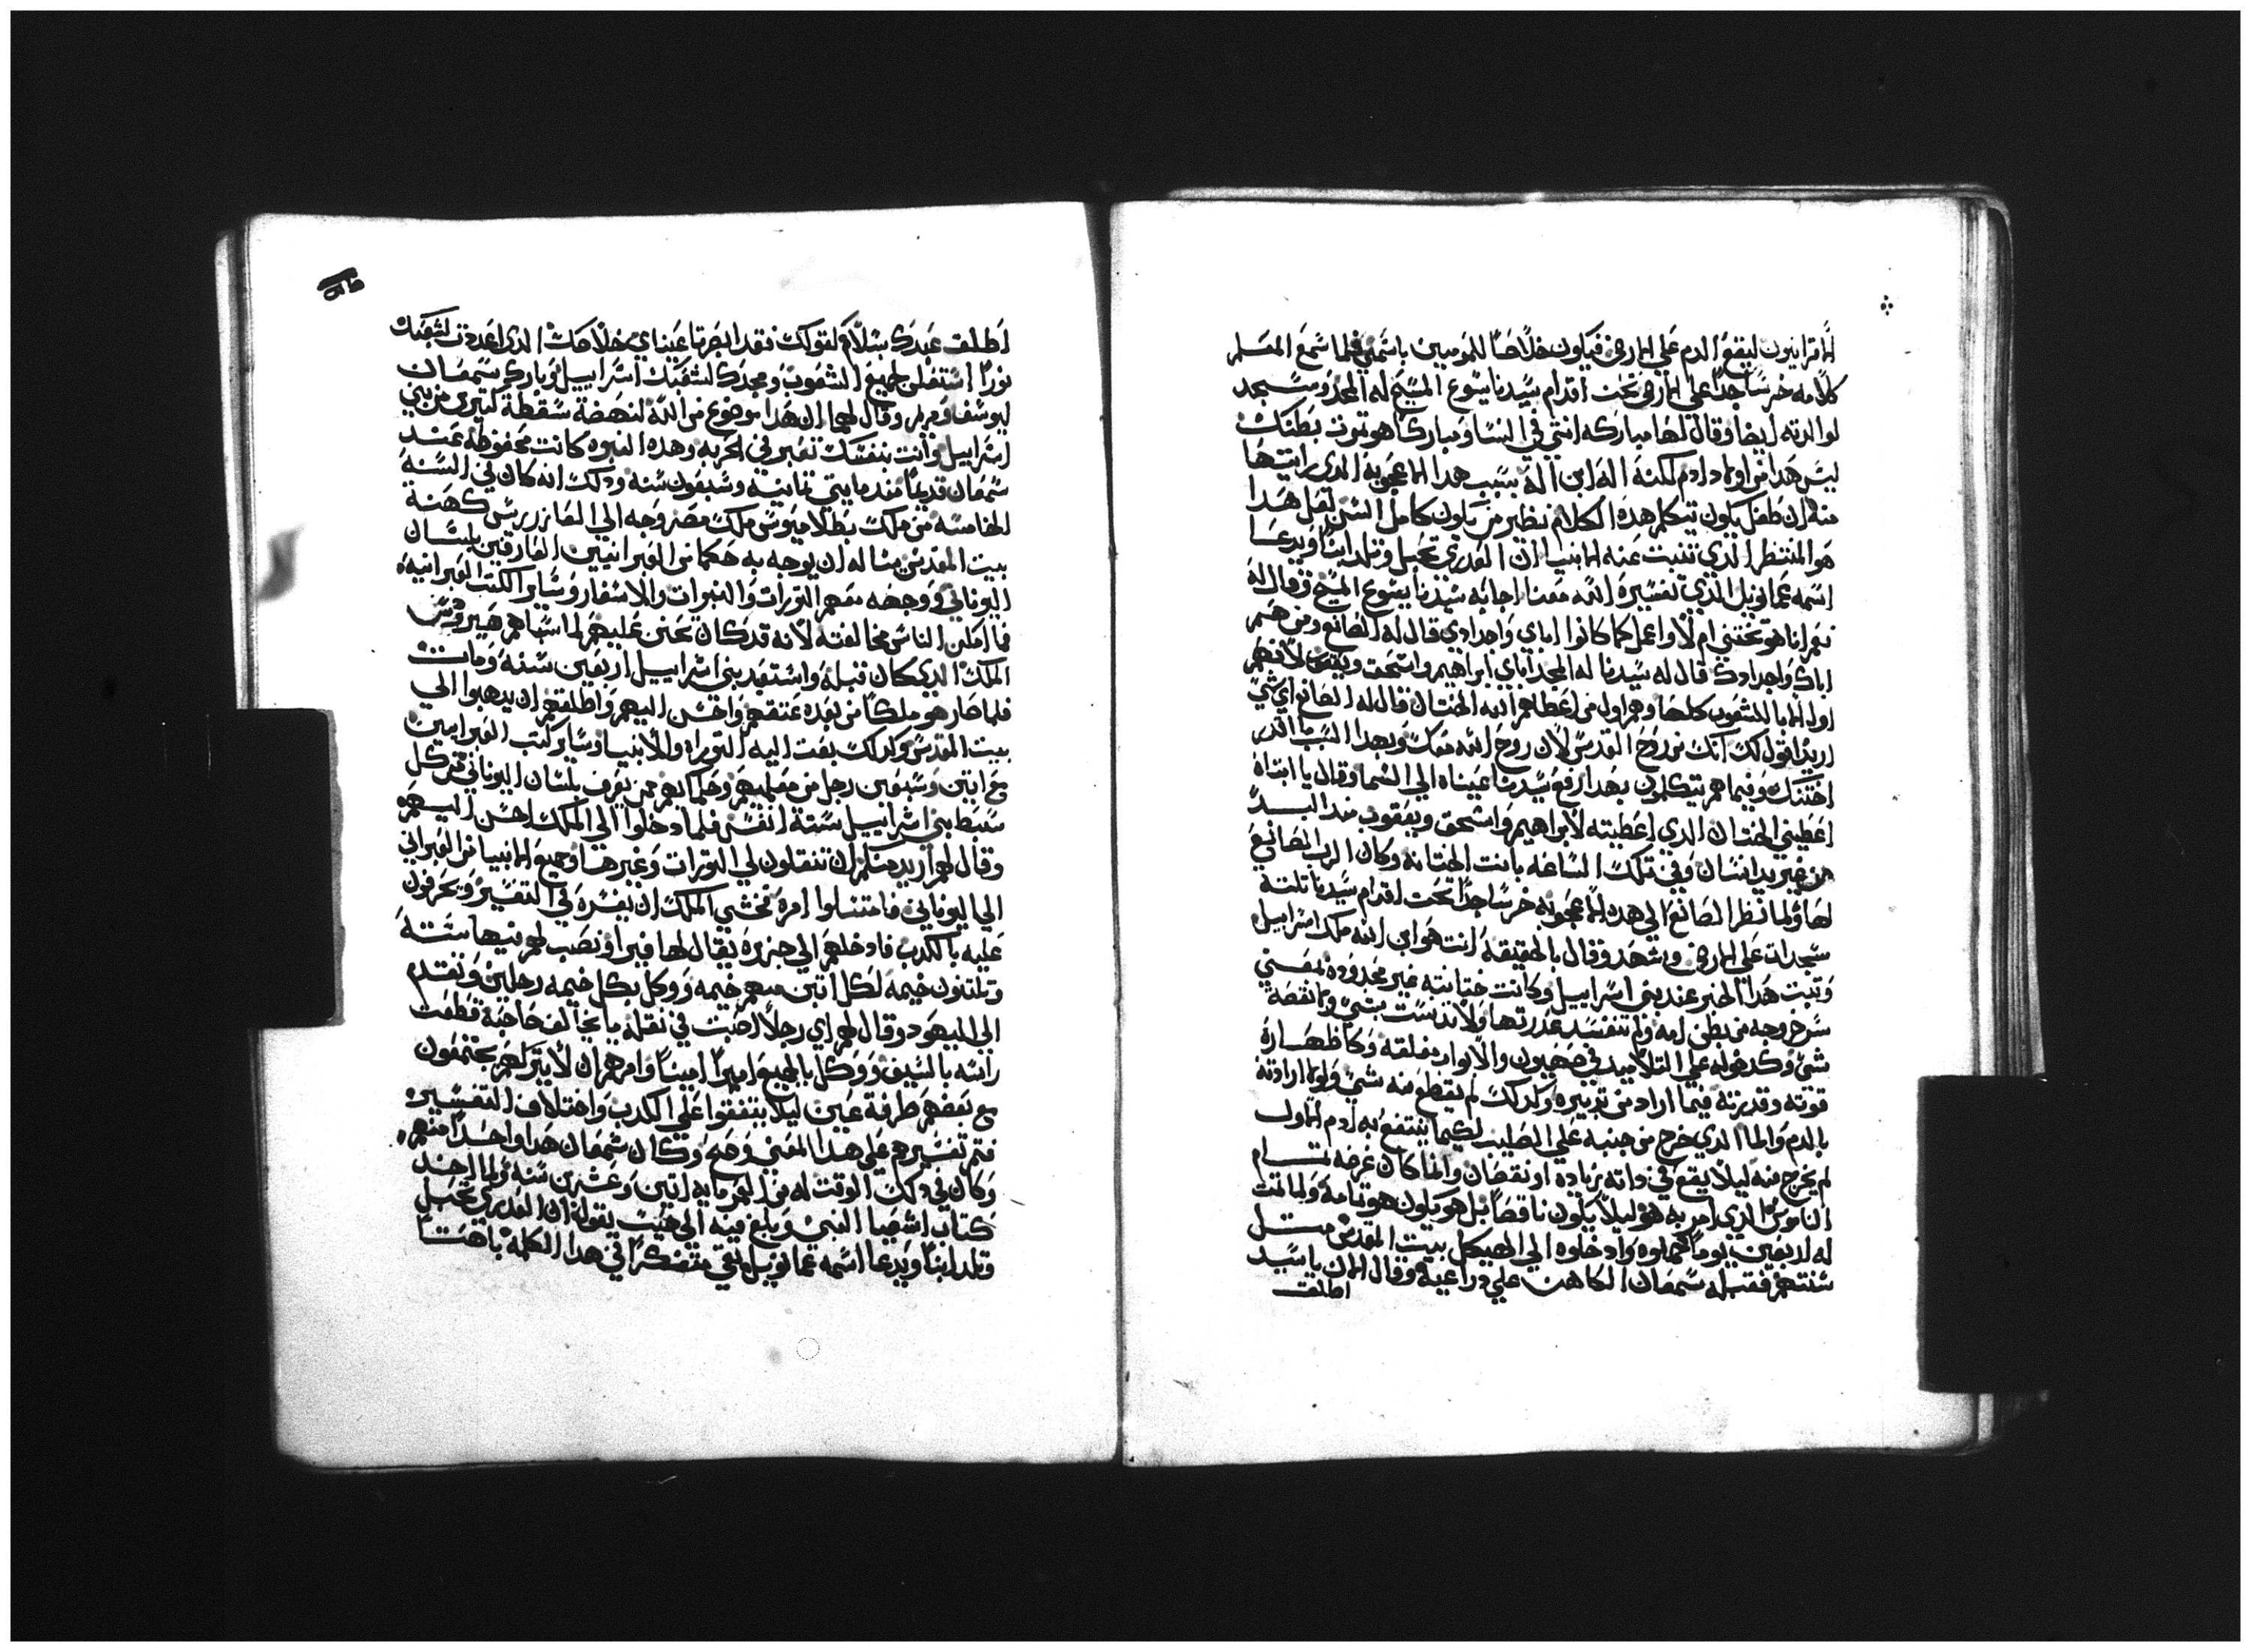 الاقرانيون ليقع الدم علي الارض فيكون خلاصًا للمومنين باسمي فلما سمع المعلم
كلامه خر ساجدًا علي الارض تحت اقدام سيدنا يسوع المسيح له المجد وسجد
لوالدته ايضا وقال لها مباركه انتي في النسا ومباركا هو تمرت بطنك
ليس هدا من اولاد ادم لكنه اله ابن اله بسبب هدا الاعجوبه الدي رايتها
منه ان طفل يكون يتكلم هده الكلام نظير من يكون كامل السن لعل هدا
هو المنتظر الدي تنبت عنه الانبيا ان العدري تحبل وتلد ابنًا ويدعا
اسمه عمانويل الدي تفسيره الله معنا اجابه سيدنا يسوع المسيح وقال له
نعم انا هو تختني ام لا واعمل كما كانوا اباي واجدادي قال له الصانع ومن هم
اباك واجدادك قال له سيدنا له المجد اباي ابراهيم واسحق ويعقوب لانهم
اول الابا للشعوب كلها وهم اول من اعطاهم الله الختان قال له الصانع اي شي
اريد اقول لك انك من روح القدس لان روح الله معك وبهدا السبب ما اقدر
اختنك وفيما هم يتكلمون بهدا رفع سيدنا عيناه الي السما وقال يا ابتاه
اعطيني الختان الدي اعطيته لابراهيم واسحق ويعقوب مند البدء
من غير يد انسان وفي تلك الساعه بانت الختانه وكان الرب الصانع
لها ولما نظر الصانع الي هده الاعجوبه خر ساجدًا تحت اقدام سيدنا تلتة
سجدات علي الارض وشهد وقال بالحقيقة انت هو ابن الله ملك اسراييل
وتبت هدا الخبر عند بني اسراييل وكانت ختانته غير محدوده لمعني
سر خروجه من بطن امه ولم تنفسد عدرتها ولا تدنست بشي ولا نقصة
شي وكدخوله علي التلاميد في صهيون والابواب مغلقه وكاظهاره
قوته وقدرته فيما اراد من تدبيره وكدلك لم يقطع منه شي ولولا ارادته
بالدم والما الدي خرج من جنبه علي الصليب لكيما ينتفع به ادم الاول
لم يخرج منه ليلا يقع في داته زياده او نقصان وانما كان غرضه تمام
الناموس الدي امر به هو ليلا يكون ناقصًا بل هو يكون هو تمامه ولما تمت
له اربعين يومًا حملوه وادخلوه الي الهيكل بيت المقدس متل
سنتهم فقبله سمعان الكاهن علي دراعيه وقال الان يا سيد
اطلق
اطلق عبدك بسلام كقولك فقد ابصرتا عيناي خلاصك الدي اعددت لشعبك
نورًا استعلن لجميع الشعوب ومجدك لشعبك اسراييل وبارك سمعان
ليوسف ومريم وقال لهما ان هدا موضوع من الله لنهضة سقطة كتيرين من بني
اسراييل وانت بنفسك تعبر في الحربه وهده النبوه كانت محفوظه عند
سمعان قديمًا مند مايتي تمانيه وسبعون سنه ودلك انه كان في السنة
الخامسه من ملك بطلاميوس ملك مصر وجه الي العازر ريس كهنة
بيت المقدس يساله ان يوجه به حكما من العبرانيين العارفين بلسان
اليوناني ووجهه معهم التورات والنبوات والاسفار وساير الكتب العبرانيه
فما امكن الناس مخالفته لانه قد كان تحنن عليهم لما سباهم هيرودس
الملك الدي كان قبله واستعبد بني اسراييل اربعين سنه ومات
فلما صار هو ملكًا من بعده عتقهم واحسن اليهم واطلقهم ان يدهبوا الي
بيت المقدس وكدلك بعت اليه التوراه والانبيا وساير كتب العبرانيين
مع اتنين وسبعين رجل من معلميهم وحكمايهم ممن يعرف بلسان اليوناني من كل
سبط بني اسراييل ستة انفس فلما دخلوا الي الملك احسن اليهم
وقال لهم اريد منكم ان تنقلون لي التورات وغيرها وجميع الانبيا من العبراني
الي اليوناني فامتتلوا امره فخشي الملك ان بغيره في التفسير ويحرفون
عليه بالكدب فادخلهم الي جزيره يقال لها فيرا ونصب لهم فيها ستة
وتلتون خيمه لكل اتنين منهم خيمه ووكل بكل خيمه رجلين وتقدم
الي اليهود وقال لهم اي رجلا اصبت في نقله ما يخالف صاحبه قطعت
راسه بالسيف ووكل بالجميع اميرًا امينًا وامرهم ان لا يتركهم يجتمعون
مع بعضهم طرفة عين ليلا يتفقوا علي الكدب واختلاف التفسير
فتم تفسيرهم علي هدا المعني وحده وكان سمعان هدا واحدًا منهم
وكان في دلك الوقت له من العمر مايه اتنين وعشرين سنه ولما اخد
كتاب اشعيا النبي وبلغ فيه الي حيت يقوله ان العدري تحبل
وتلد ابنًا ويدعا اسمه عمانويل بقي متفكرًا في هدا الكلمه باهتًا